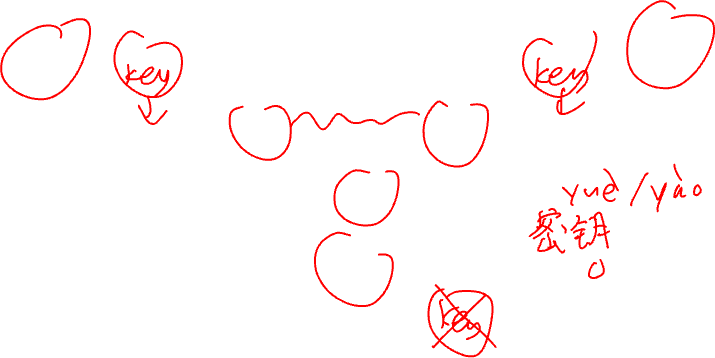 key
key
yuè/yào
密钥
key